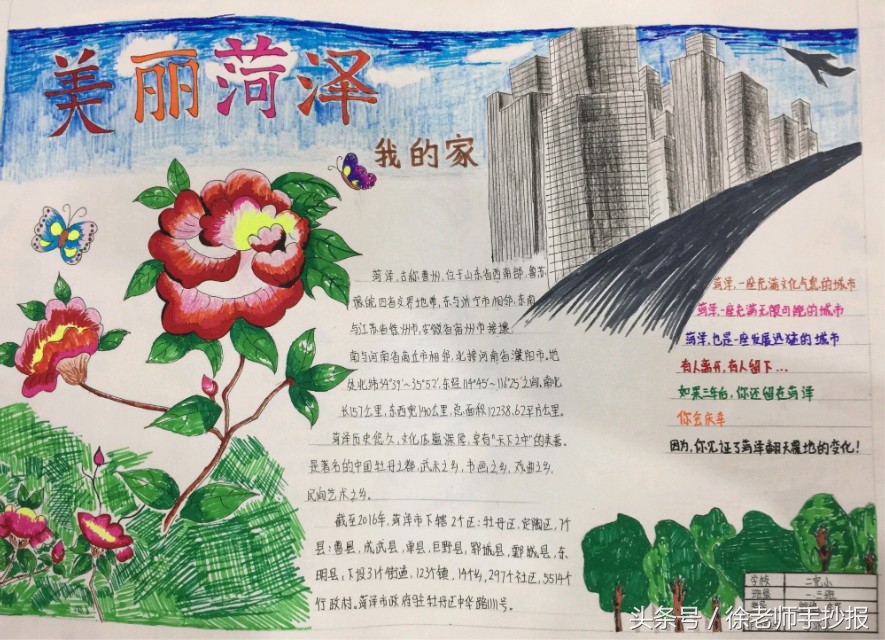 美丽菏泽
我的家
菏泽,古称曹州,位于山东省西南部,鲁苏
豫皖四省交界地带,东与济宁市相邻,东南
与江苏省徐州市,安徽省宿州市接壤,
南与河南省商丘市相邻,北接河南省濮阳市。地
处北纬34°39'~35°52',东经114°45'~116°25'之间,南北
长157公里,东西宽140公里,总面积12238.62平方公里。
菏泽历史悠久,文化底蕴深厚,享有"天下之中"的美誉。
是著名的中国牡丹之都,武术之乡,书画之乡,戏曲之乡,
民间艺术之乡。
截至2016年,菏泽市下辖2个区:牡丹区,定陶区,7个
县:曹县,成武县,单县,巨野县,郓城县,鄄城县,东
明县;下设31个街道,123个镇,14个乡,297个社区,5514个
行政村。菏泽市政府驻牡丹区中华路1111号。
菏泽,一座充满文化气息的城市
菏泽,一座充满无限可能的城市
菏泽,也是一座发展迅猛的城市
有人离开,有人留下...
如果三年后,你还留在菏泽
你会庆幸
因为,你见证了菏泽翻天覆地的变化!
学校 二完小
班级 一.三班
头条号 / 徐老师手抄报